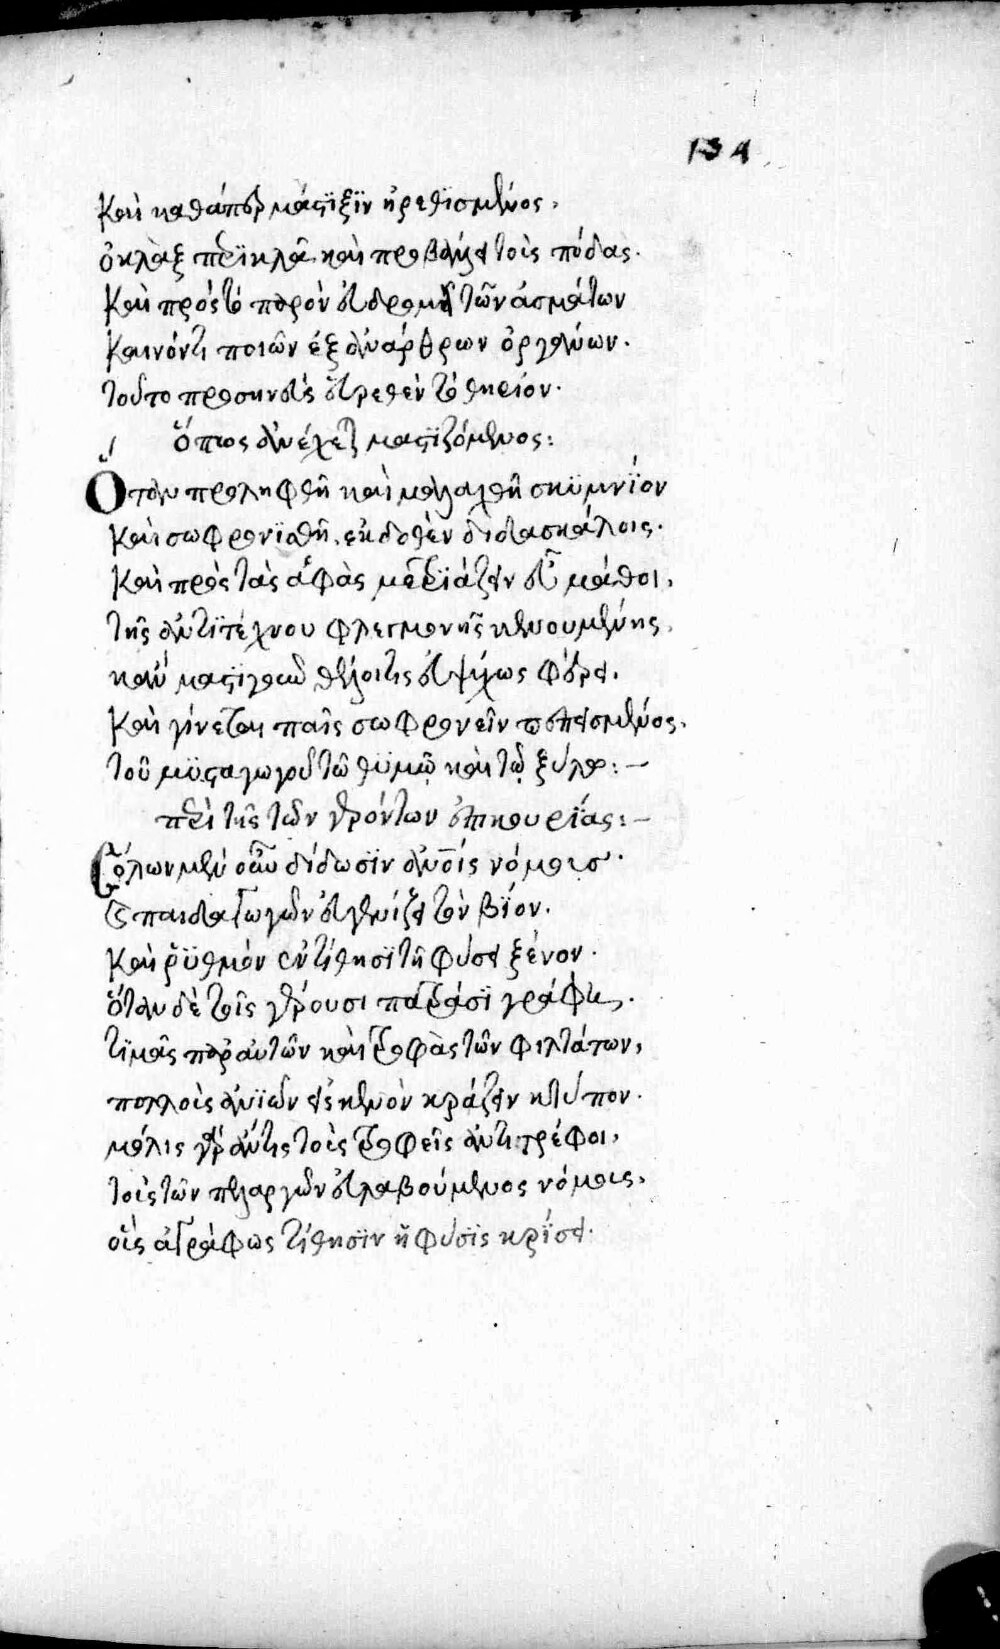 134
Καὶ καθάπερ μάστιξιν ἠρεθϊσμένος.
ὀκλὰξ περικλᾶ καὶ προβάλλει τοὺς πόδας.
Καὶ πρὸς τὸ παρὸν ἐπιδραμὼν τῶν ἀσμάτων
Καινόν τι ποιῶν ἐξ ἐνάρθρων ὀργάνων.
τοῦτο προσηνὲς εὑρεθὲν τὸ θηρίον.
ὅπως ἀνέχεται μαστϊζόμενος:
Ὅταν προληφθῆ καὶ μαλαχθῆ σκϋμνΐον
Καὶ σωφρονϊσθῆ, ἐκδοθὲν διδασκάλοις.
Καὶ πρὸς τὰς ἁφὰς μετριάζειν εὖ μάθοι,
τῆς ἀντιτέχνου φλεγμονῆς κενουμένης,
κἂν μαστιγοῦν θέλοι τις εὐψύχως φέρει.
Καὶ γίνεται παῖς σωφρονεῖν πεπεισμένος.
τοῦ μϋσταγωγοῦ τῶ θϋμῶ καὶ τῷ ξύλω:—
περὶ τῆς τῶν γερόντων ἐπικουρΐας:—
Σόλων μὲν οὖν δίδωσϊν ἀνθρώποις νόμους.
Καὶ ῥϋθμὸν ἐντίθησϊ τῆ φύσει ξένον.
ὅταν δὲ τοῖς γέρουσι πατράσϊ γράφη.
τϊμὰς παρ' αὐτῶν καὶ τροφὰς τῶν φιλτάτων,
πολλοὺς ἀνϊὼν εἰς κενὸν κράζειν κτύπον.
μόλις γὰρ ἄν τις τοὺς τροφεῖς ἀντιτρέφοι,
τοὺς τῶν πελαργῶν εὐλαβούμενος νόμους,
οὓς ἀγράφως τίθησϊν ἡ φύσϊς κρΐσει.